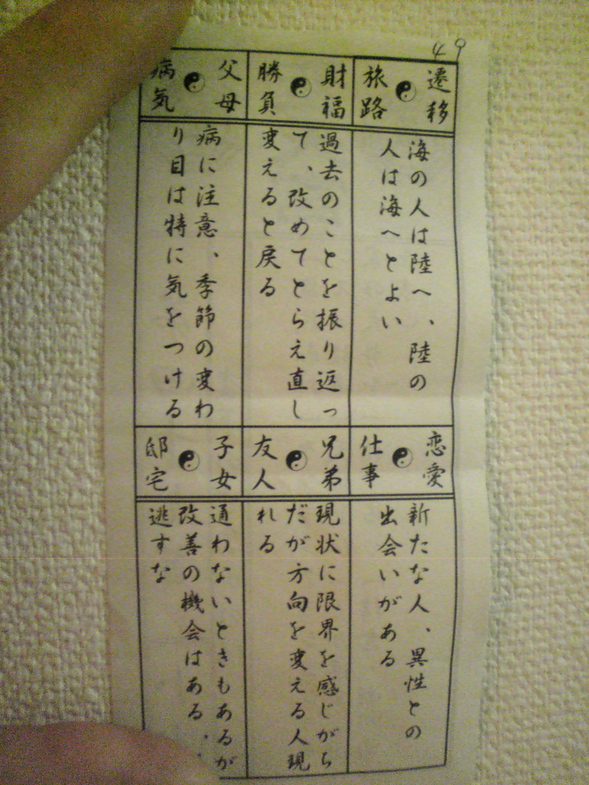 49
遷移
旅路
海の人は陸へ、陸の
人は海へとよい
財福
勝負
過去のことを振り返っ
て、改めてとらえ直し
変えると戻る
父母
病気
病に注意、季節の変わ
り目は特に気をつける
恋愛
仕事
新たな人、異性との
出会いがある
兄弟
友人
現状に限界を感じがち
だが方向を変える人現
れる
子女
邸宅
通わないときもあるが
改善の機会はある、
逃すな